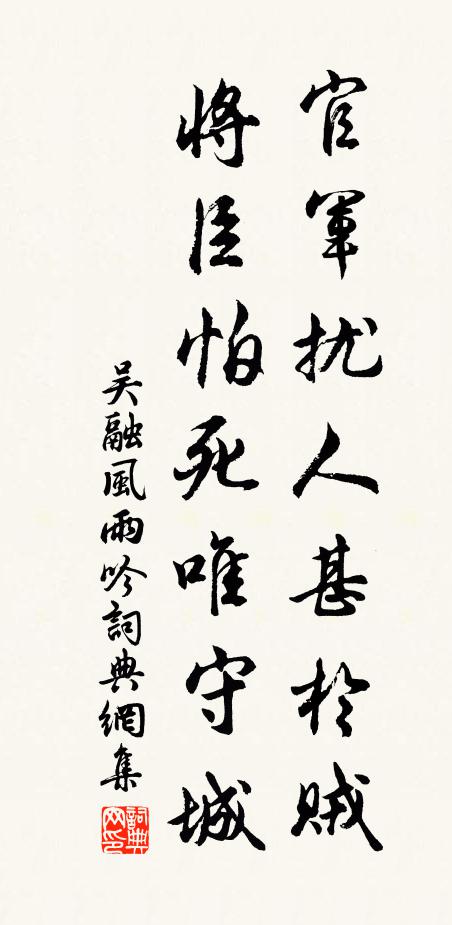 官軍扰人甚於賊
將臣怕死唯守城
吴融風雨吟詞典網集
詞典
网印